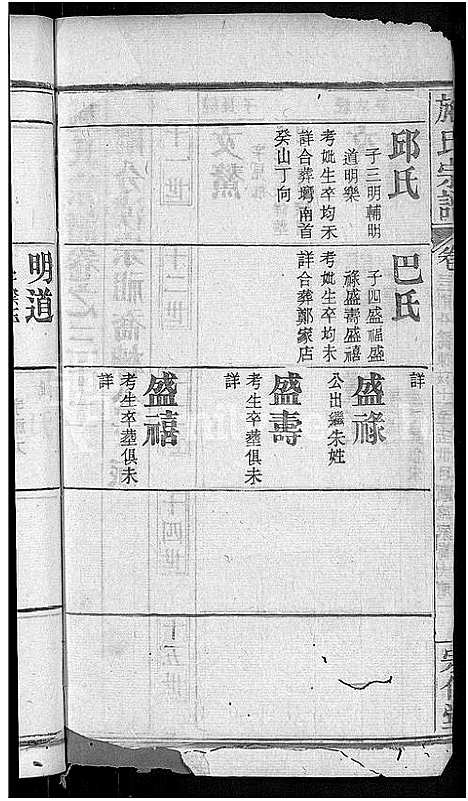 施氏宗譜
卷三
邱氏
子三明輔明
道明樂
考妣生卒均未
詳合葬塆南首
癸山丁向
巴氏
子四盛福盛
祿盛壽盛禧
考妣生卒均未
詳合葬鄭家店
詳
盛祿
公出繼朱姓
盛壽
考生卒葬俱未
詳
盛禧
考生卒葬俱未
詳
明道